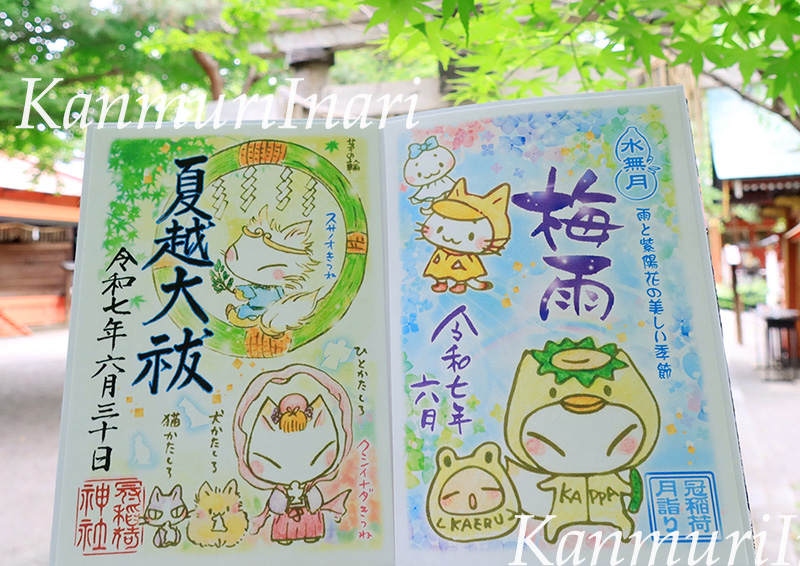 KanmuriInari
茅の輪
夏越大祓
スサノオきつね
令和七年六月三十日
ひとかたしろ
犬かたしろ
猫かたしろ
クシイナダきつね
冠稲荷
神社
水無月
梅雨
雨と紫陽花の美しい季節
令和七年
六月
KAPPA
KAERU
冠稲荷
月詣り
KanmuriIn